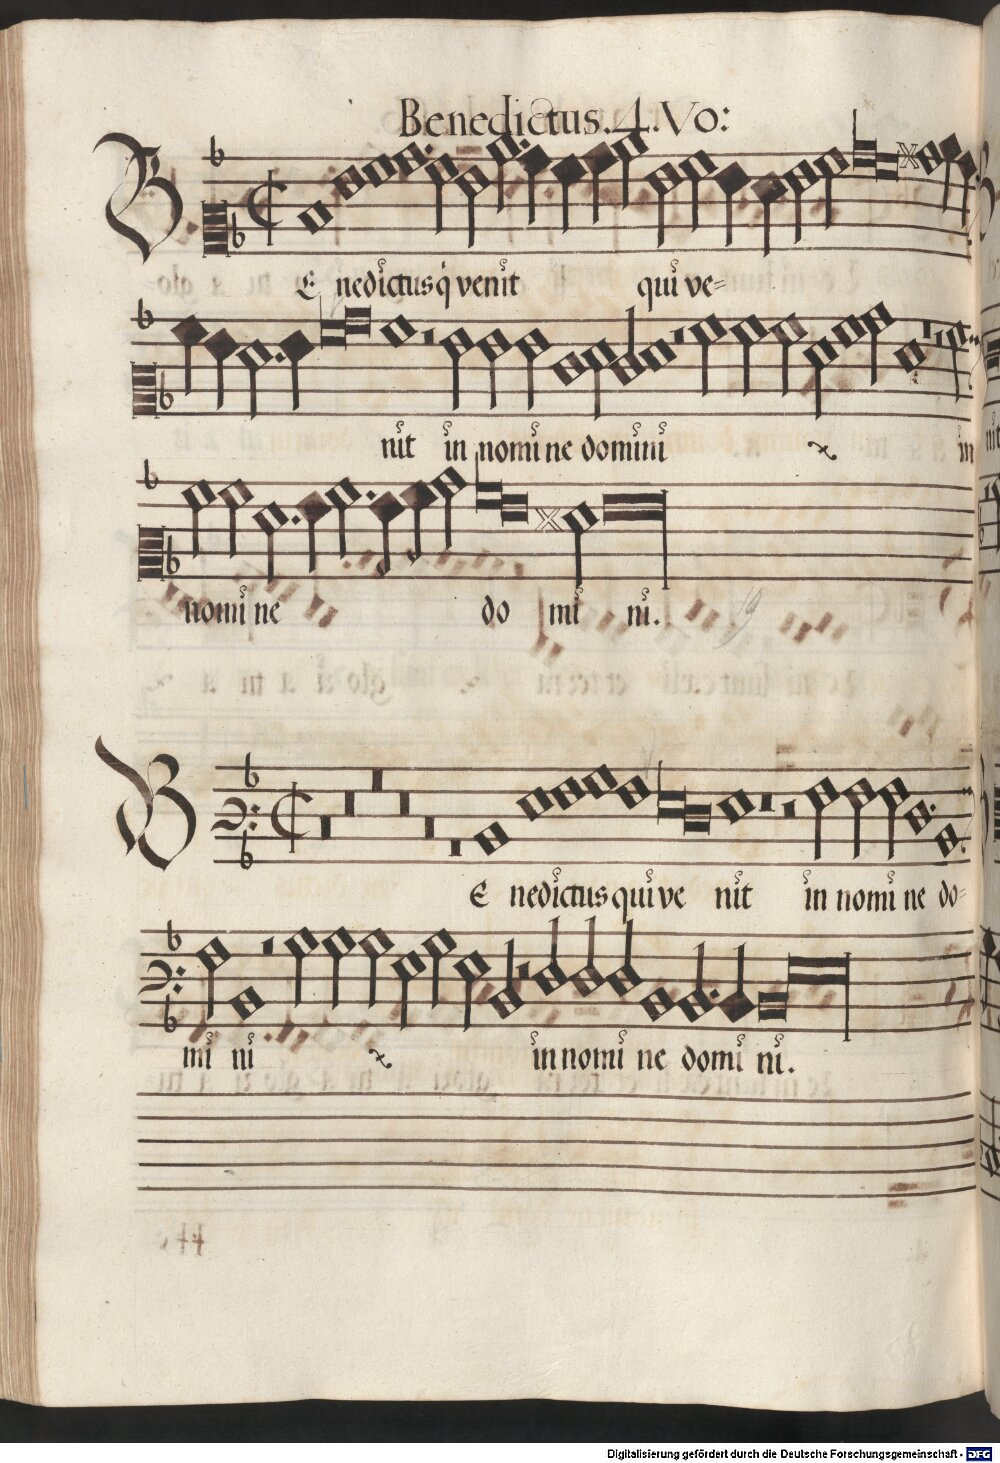 Benedictus. 4. Vo:
BE nedictus q̇ venit qui ve=
nit in nomine domini in
nomi ne do mi ni.
BE nedictus qui ve nit in nomi ne do=
mi ni in nomi ne domi ni.
Digitalisierung gefördert durch die Deutsche Forschungsgemeinschaft - DFG